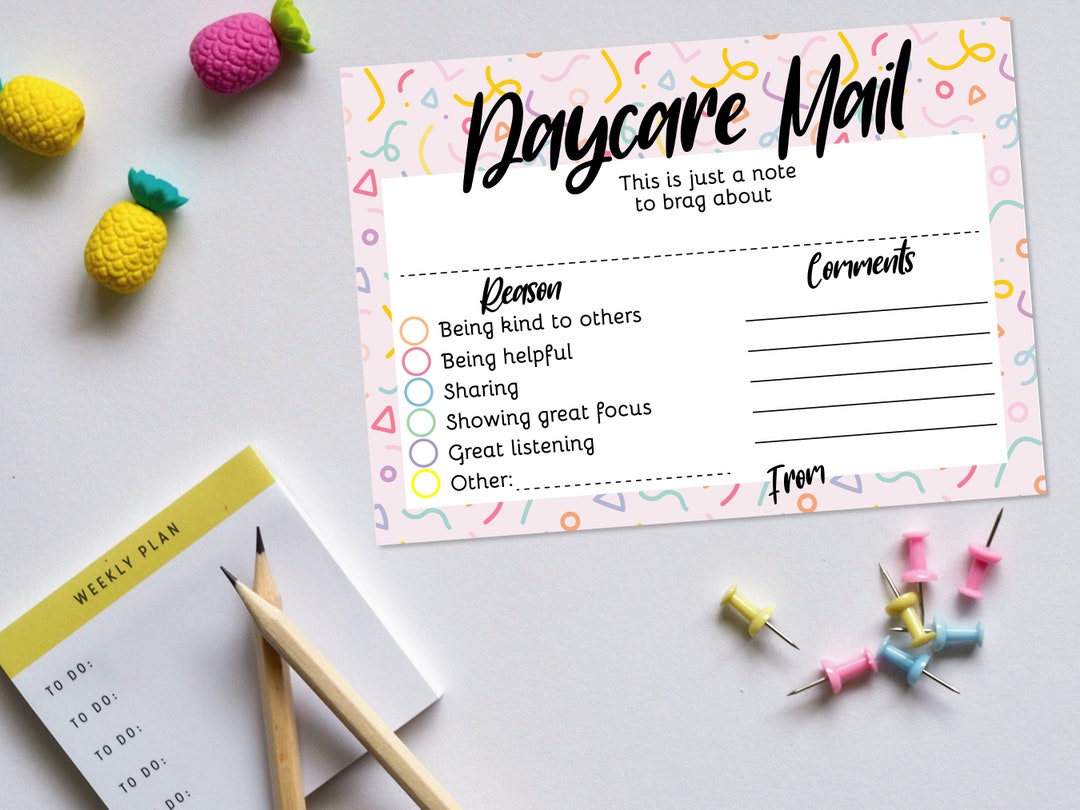 Daycare Mail
This is just a note
to brag about
Reason
Being kind to others
Being helpful
Sharing
Showing great focus
Great listening
Other:
Comments
From
WEEKLY PLAN
TO DO:
TO DO:
TO DO:
TO DO:
DO: